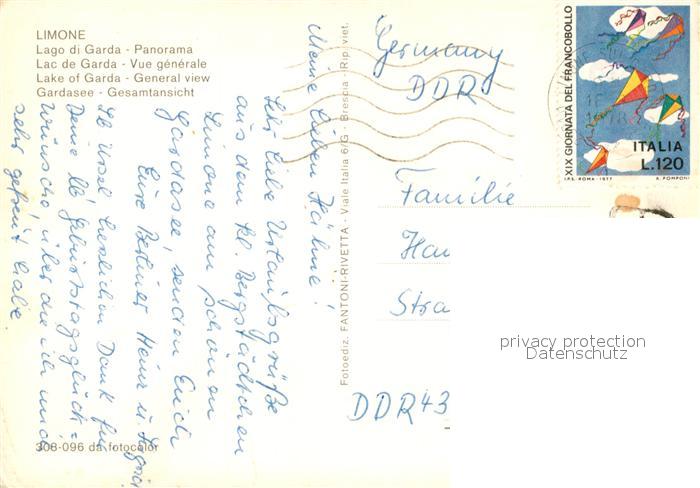 LIMONE
Lago di Garda - Panorama
Lac de Garda - Vue générale
Lake of Garda - General view
Gardasee - Gesamtansicht
Meine lieben Hähne!
Sehr liebe Urlaubsgrüße
aus dem kl. Bergstädtchen
Limone am schönen
Gardasee, senden Euch
Eure Berliner Heinz u.
Lb Ursel herzlichen Dank für
Deine lb. Geburtstagsglück=
wünsche, über die ich mich
sehr gefreut habe
308-096 da fotocolor
Fotoediz. FANTONI-RIVETTA - Viale Italia 6/G - Brescia - Rip. viet.
Germany
DDR
Familie
Ha
Stra
DDR 43
XIX GIORNATA DEL FRANCOBOLLO
ITALIA
L.120
I.P.S.-ROMA-1977
A. POMPONI
privacy protection
Datenschutz